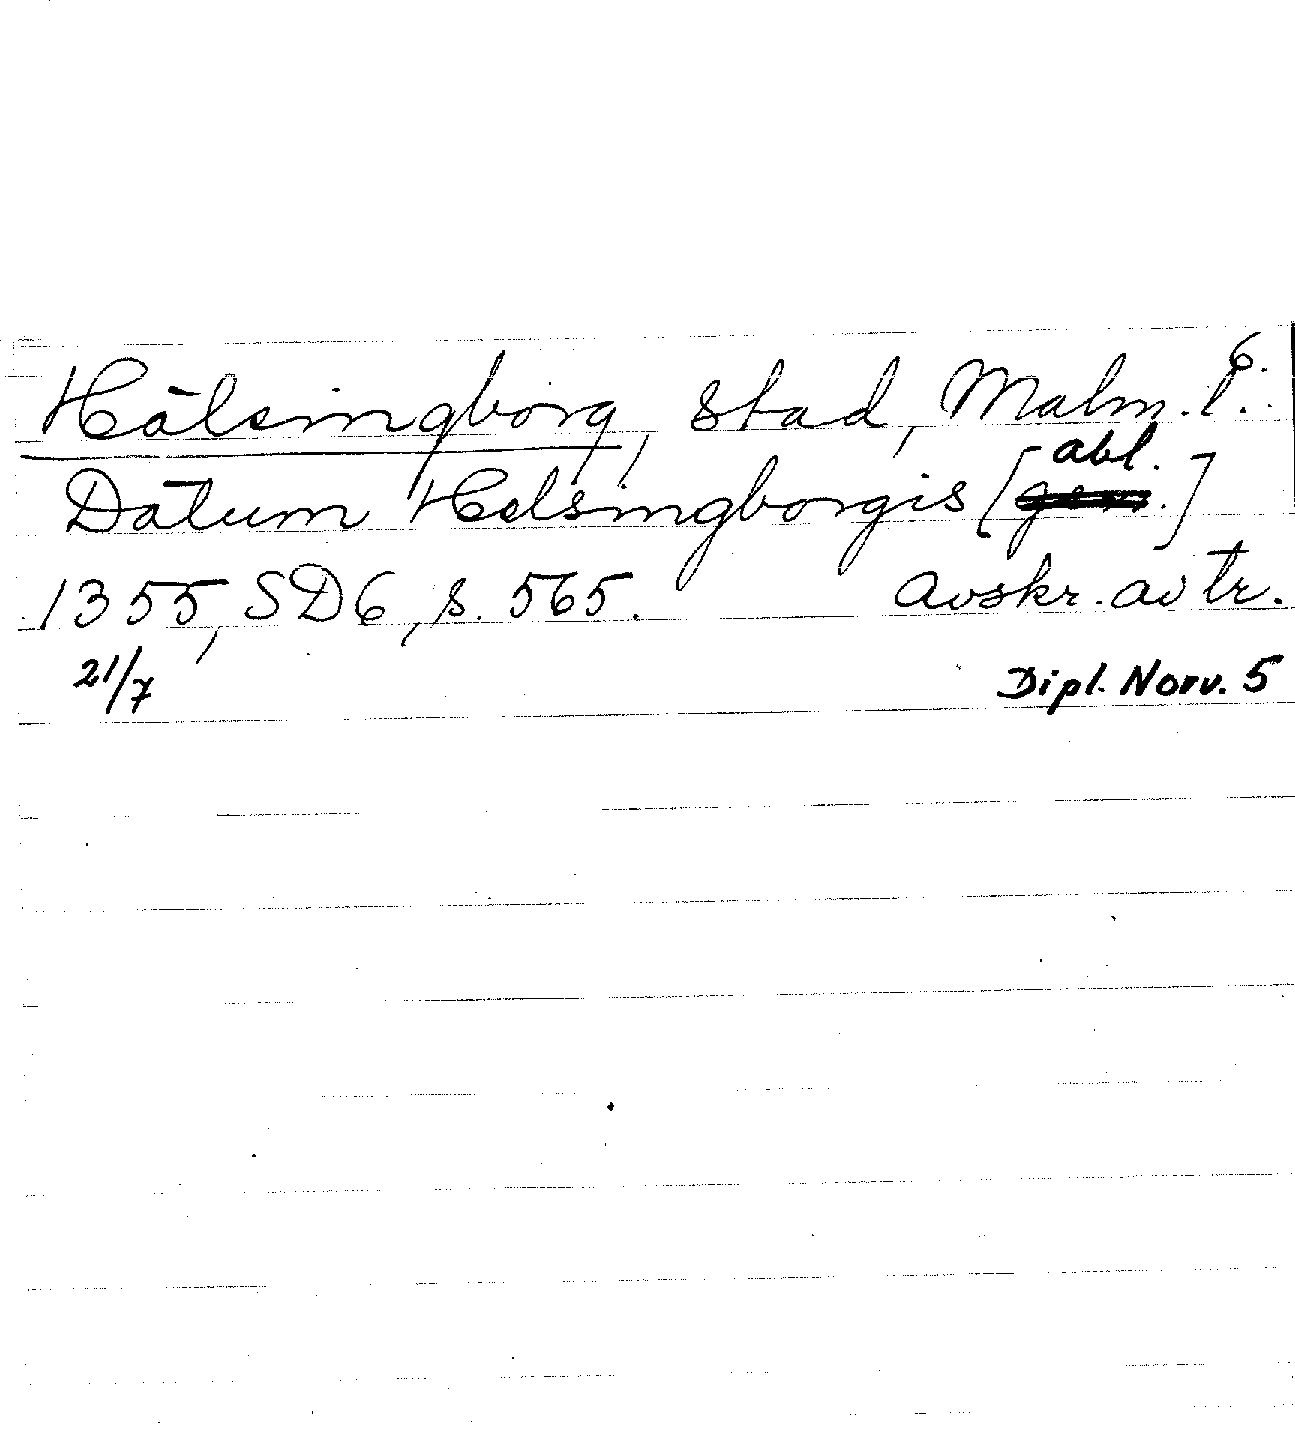 6.
Hälsingborg, stad, Malm. l.
Datum Helsingborgis [abl.]
1355, SD6, s. 565. Avskr. av tr.
21/7 Dipl. Norv. 5